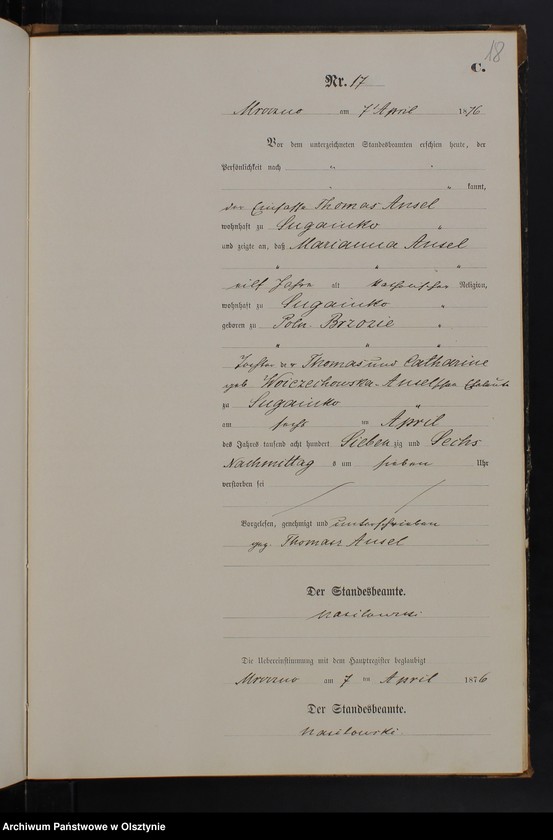 18
C.
Nr. 17
Mroczno am 7t April 1876
Vor dem unterzeichneten Standesbeamten erschien heute, der
Persönlichkeit nach " "
" " kannt,
der Einsasse Thomas Ansel
wohnhaft zu Sugainko "
und zeigte an, daß Marianna Ansel
" " "
eilf Jahre alt katholischer Religion,
wohnhaft zu Sugainko "
geboren zu Poln. Brzozie "
" " "
Tochter der Thomas und Catharine
geb. Woiczechowska-Ansel'schen Eheleute
zu Sugainko "
am sechs ten April
des Jahres tausend acht hundert Siebenzig und Sechs
Nachmittag s um sieben Uhr
verstorben sei
Vorgelesen, genehmigt und unterschrieben
gez. Thomas Ansel
Der Standesbeamte.
Die Uebereinstimmung mit dem Hauptregister beglaubigt
Mroczno am 7 ten April 1876
Der Standesbeamte.
Archiwum Państwowe w Olsztynie